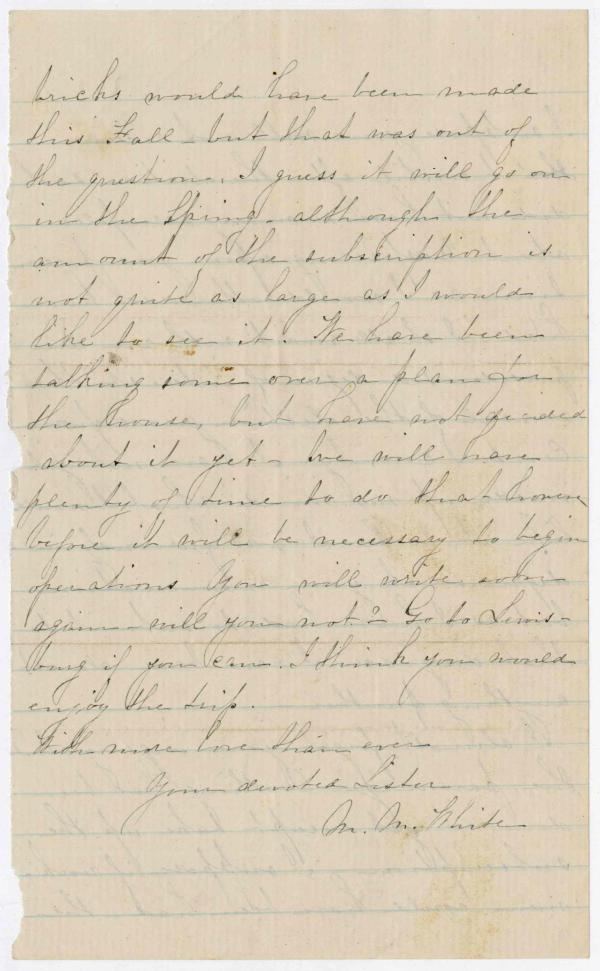 bricks would have been made
this Fall - but that was out of
the question. I guess it will go on
in the Spring - although the
amount of the subscription is
not quite as large as I would
like to see it. We have been
talking some over a plan for
the house, but have not decided
about it yet - We will have
plenty of time to do that however
before it will be necessary to begin
operations You will write soon
again - will you not? - Go to Lewis-
burg if you can. I think you would
enjoy the trip.
With more love than ever
Your devoted Sister
M. M. White